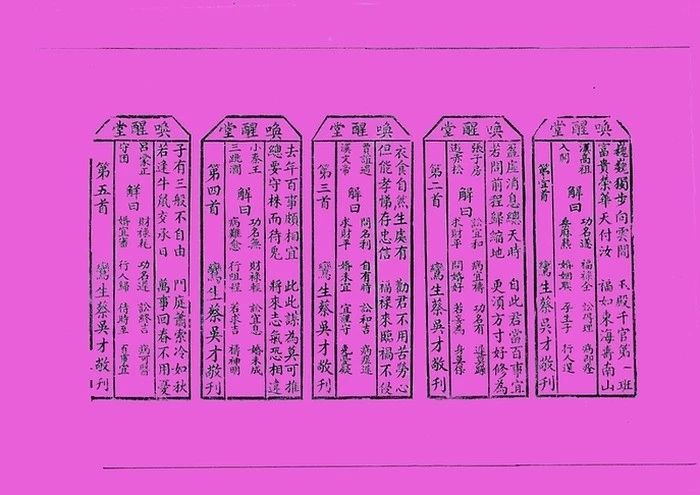 喚醒堂
巍巍獨步向雲間 玉殿千官第一班
富貴榮華天付汝 福如東海壽南山
漢高祖 入關
解曰
功名遂 福祿全 訟得理 病即痊
桑麻熟 婚姻聯 孕生子 行人還
第一首 鸞生蔡吳才敬刊
喚醒堂
盈虛消息總天時 自此君當百事宜
若問前程歸縮地 更須方寸好修為
張子房 遊赤松
解曰
訟宜和 病宜禱 功名有
求財平 問婚好 若妄為
第二首 鸞生蔡吳才敬刊
喚醒堂
衣食自然生處有 勸君不用苦勞心
但能孝悌存忠信 福祿來臨禍不侵
賈誼遇 漢文帝
解曰
問名利 自有時 訟和吉 病
求財平 婚未宜 宜謹守
第三首 鸞生蔡吳才敬刊
喚醒堂
去年百事頗相宜 此此謀為莫可推
總要守株而待兔 將來志氣恐相違
小秦王 三跳澗
解曰
功名無 財祿輕 訟宜息 婚未成
病難愈 行阻程 若求吉 禱神明
第四首 鸞生蔡吳才敬刊
子有三般不自由 門庭蕭索冷如秋
若逢牛鼠交承日 萬事回春不用憂
呂蒙正 守困
解曰
財祿耗 功名遲 訟終吉 病可醫
婚宜審 行人歸 待時至 百事宜
第五首 鸞生蔡吳才敬刊